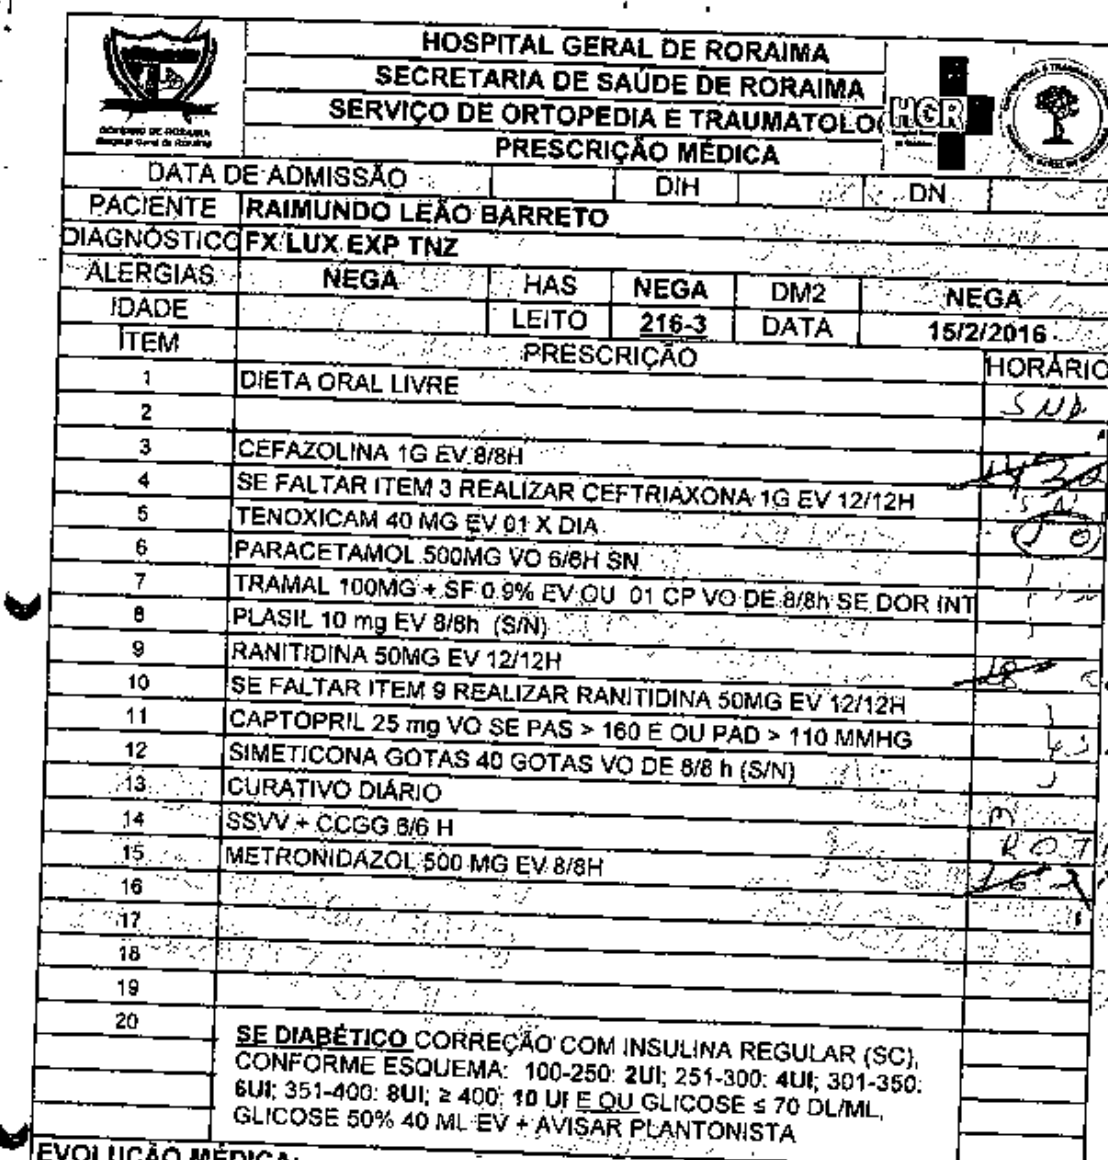 HOSPITAL GERAL DE RORAIMA
SECRETARIA DE SAÚDE DE RORAIMA
SERVIÇO DE ORTOPEDIA E TRAUMATOLO
PRESCRIÇÃO MÉDICA
GOVERNO DE RORAIMA
Hospital Geral de Roraima
HGR
DATA DE ADMISSÃO DIH DN
PACIENTE RAIMUNDO LEÃO BARRETO
DIAGNÓSTICO FX LUX EXP TNZ
ALERGIAS NEGA HAS NEGA DM2 NEGA
IDADE LEITO 216-3 DATA 15/2/2016
ITEM PRESCRIÇÃO HORÁRIO
1 DIETA ORAL LIVRE SND
2
3 CEFAZOLINA 1G EV 8/8H
4 SE FALTAR ITEM 3 REALIZAR CEFTRIAXONA 1G EV 12/12H
5 TENOXICAM 40 MG EV 01 X DIA
6 PARACETAMOL 500MG VO 6/6H SN
7 TRAMAL 100MG + SF 0.9% EV OU 01 CP VO DE 8/8h SE DOR INT
8 PLASIL 10 mg EV 8/8h (S/N)
9 RANITIDINA 50MG EV 12/12H 18
10 SE FALTAR ITEM 9 REALIZAR RANITIDINA 50MG EV 12/12H
11 CAPTOPRIL 25 mg VO SE PAS > 160 E OU PAD > 110 MMHG
12 SIMETICONA GOTAS 40 GOTAS VO DE 8/8 h (S/N)
13 CURATIVO DIÁRIO M
14 SSVV + CCGG 6/6 H ROT
15 METRONIDAZOL 500 MG EV 8/8H
16
17
18
19
20
SE DIABÉTICO CORREÇÃO COM INSULINA REGULAR (SC),
CONFORME ESQUEMA: 100-250: 2UI; 251-300: 4UI; 301-350:
6UI; 351-400: 8UI; ≥ 400: 10 UI E OU GLICOSE ≤ 70 DL/ML,
GLICOSE 50% 40 ML EV + AVISAR PLANTONISTA
EVOLUÇÃO MÉDICA: